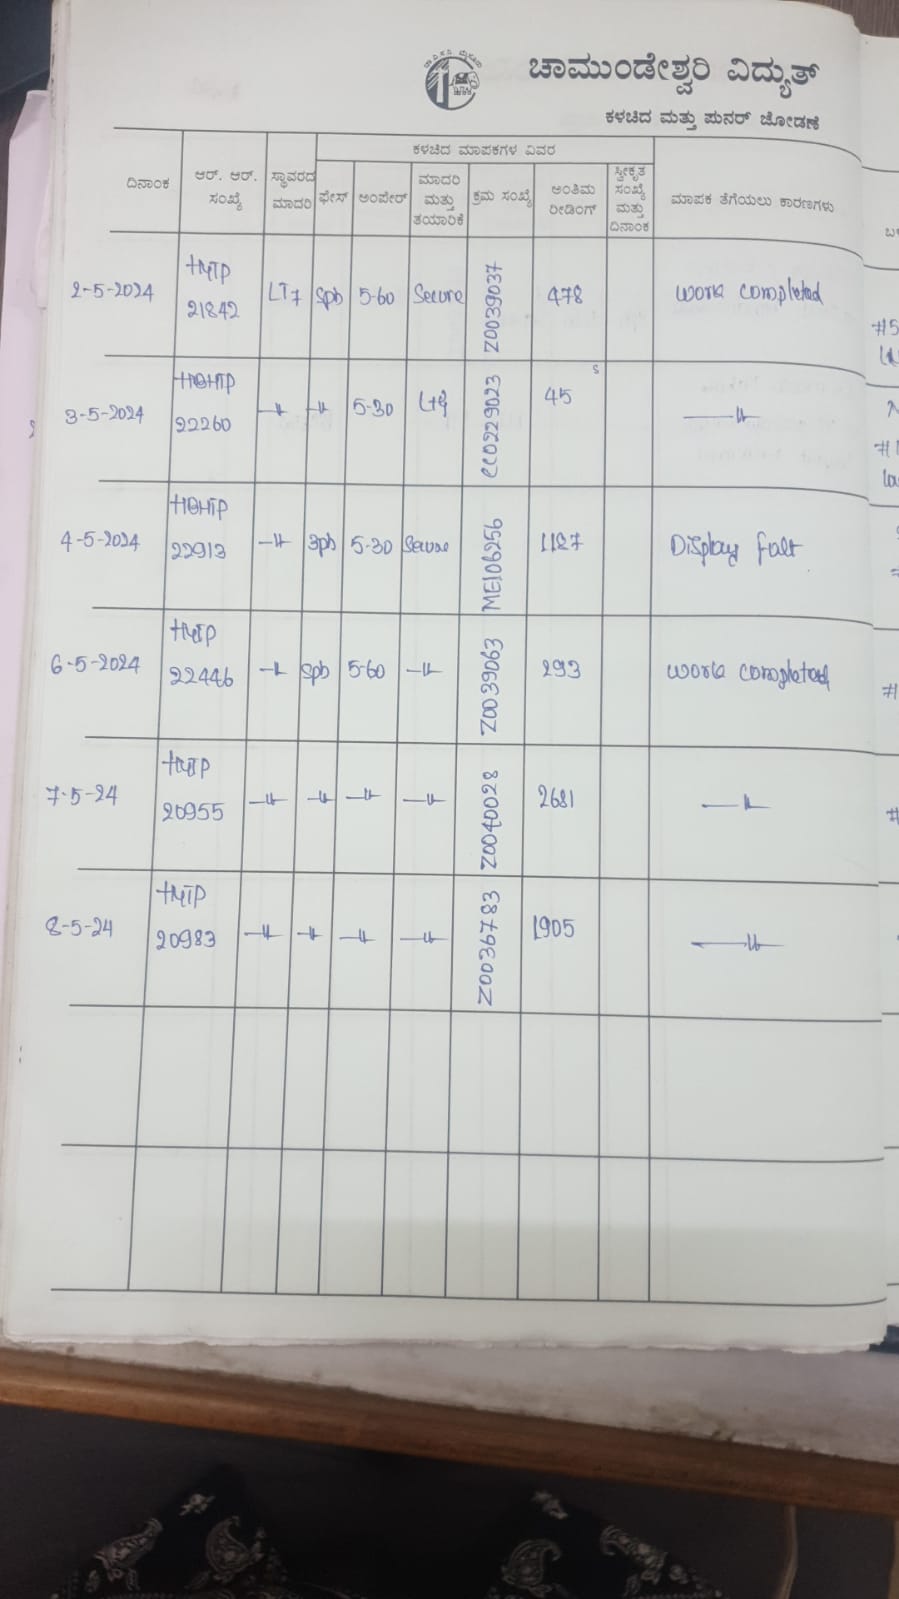 ಚಾಮುಂಡೇಶ್ವರಿ ವಿದ್ಯುತ್
ಕಳಚಿದ ಮತ್ತು ಪುನರ್ ಜೋಡಣೆ
ದಿನಾಂಕ
ಆರ್. ಆರ್. ಸಂಖ್ಯೆ
ಸ್ಥಾವರದ ಮಾದರಿ
ಕಳಚಿದ ಮಾಪಕಗಳ ವಿವರ
ಫೇಸ್
ಅಂಪೇರ್
ಮಾದರಿ ಮತ್ತು ತಯಾರಿಕೆ
ಕ್ರಮ ಸಂಖ್ಯೆ
ಅಂತಿಮ ರೀಡಿಂಗ್
ಸ್ವೀಕೃತ ಸಂಖ್ಯೆ ಮತ್ತು ದಿನಾಂಕ
ಮಾಪಕ ತೆಗೆಯಲು ಕಾರಣಗಳು
2-5-2024 21842 LT7 sph 5-60 Secure Z0039037 478 work completed
3-5-2024 22260 5-30 L+g 45
4-5-2024 22913 3ph 5-30 Secure ME106256 1127 Display falt
6-5-2024 22446 sph 5-60 Z0039063 293 work completed
7-5-24 20955 Z0040028 2681
8-5-24 20983 Z0036783 1905